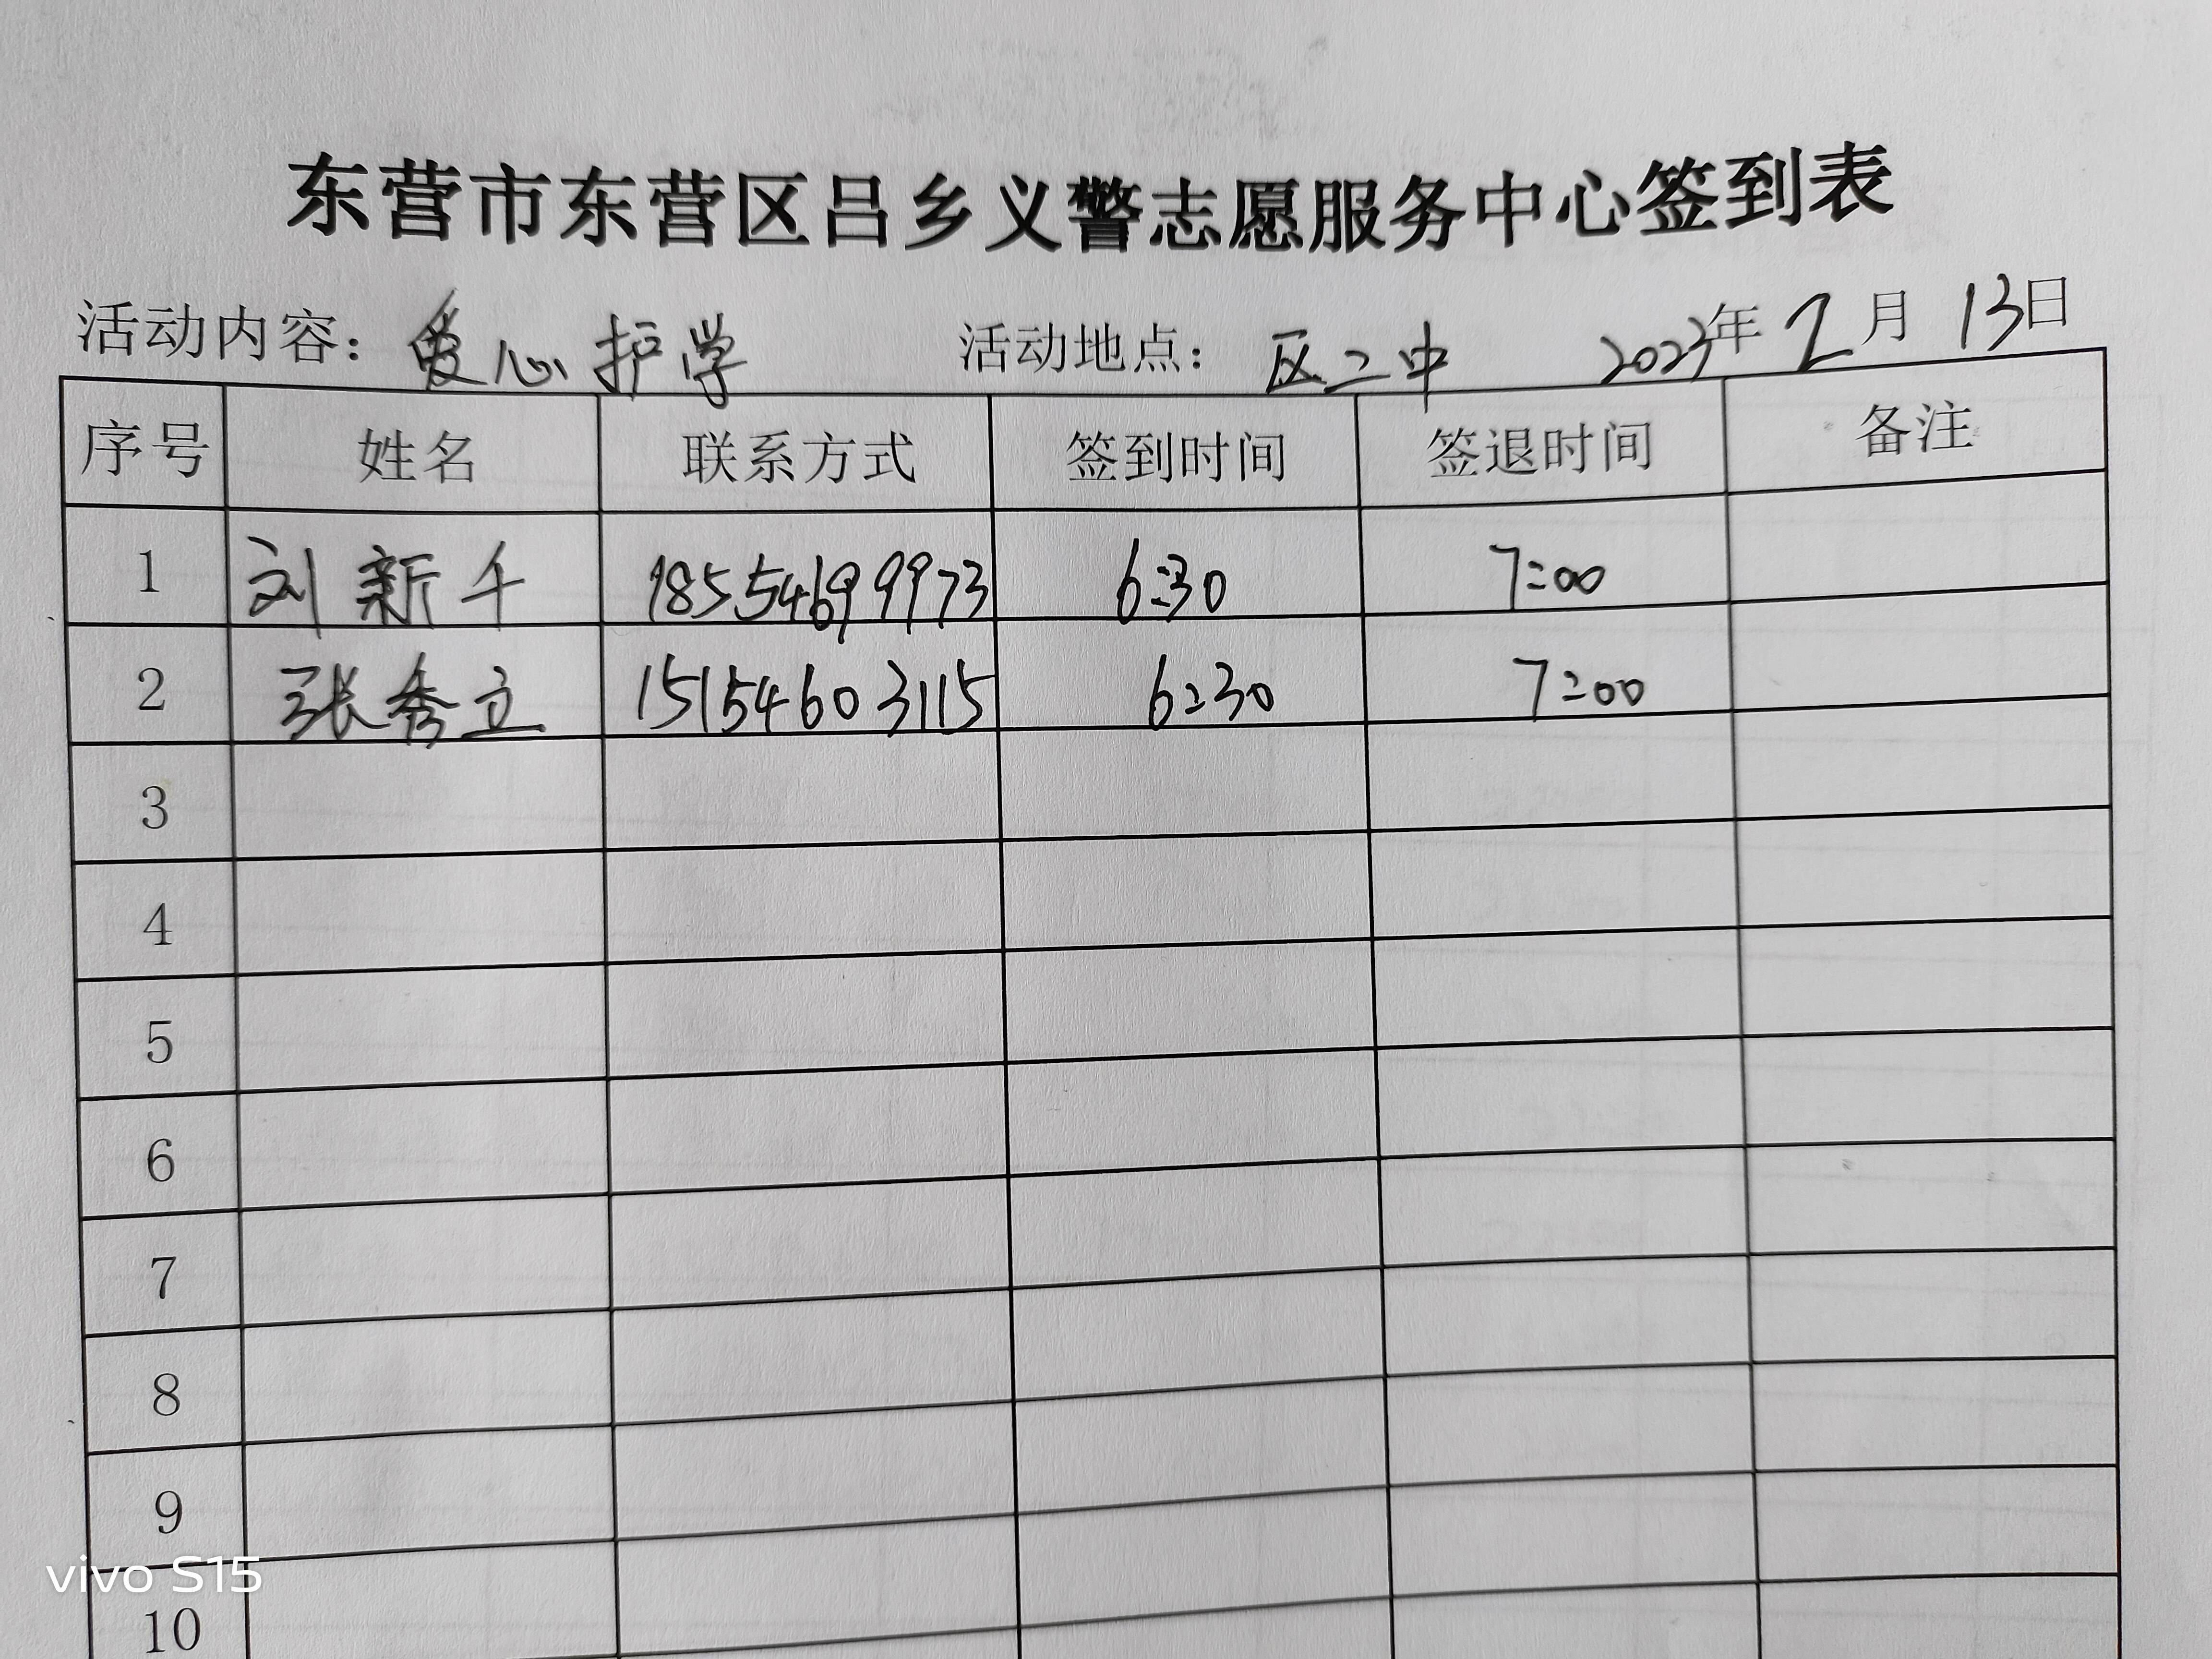 东营市东营区吕乡义警志愿服务中心签到表
活动内容：爱心护学 活动地点：区二中 2023年2月13日
序号 姓名 联系方式 签到时间 签退时间 备注
1 刘新千 18554699973 6:30 7:00
2 张秀立 15154603115 6:30 7:00
3
4
5
6
7
8
9
10
vivo S15